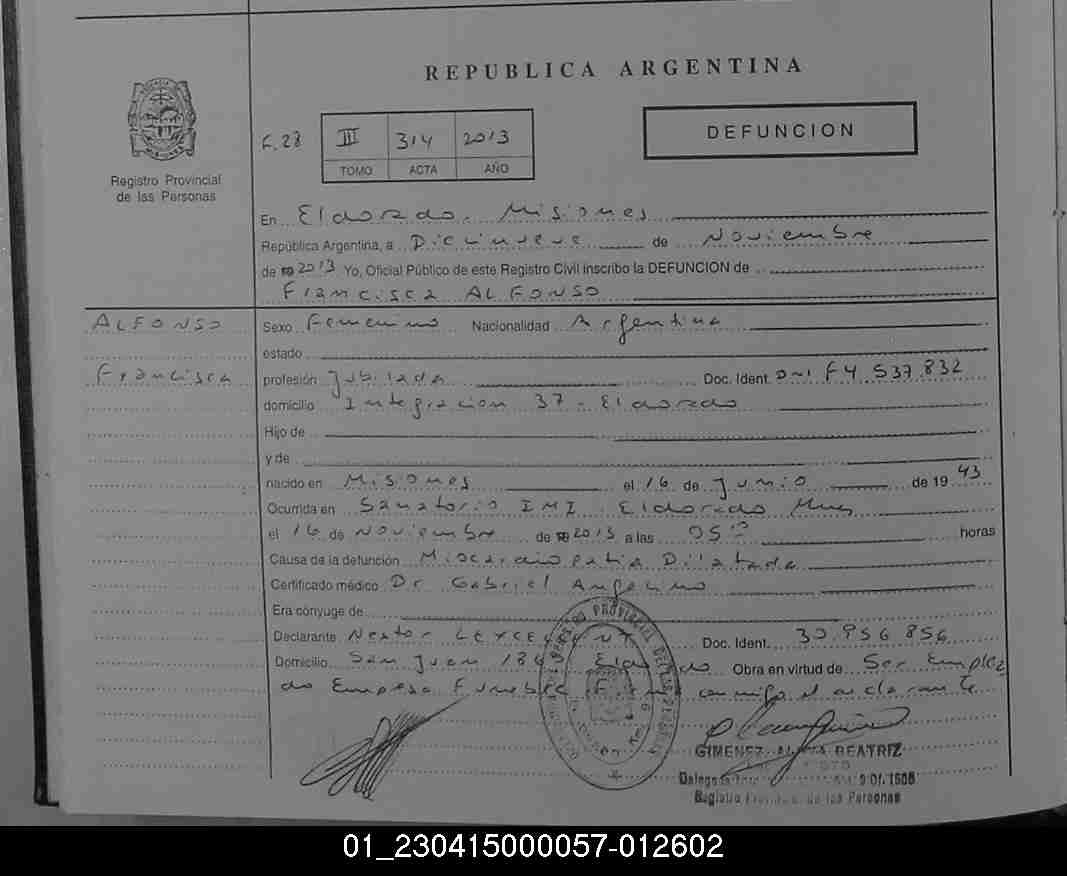 REPUBLICA ARGENTINA
DEFUNCION
F. 28 III 314 2013
TOMO ACTA AÑO
Registro Provincial
de las Personas
En Eldorado. Misiones
República Argentina, a Diecinueve de Noviembre
de 2013 Yo, Oficial Público de este Registro Civil inscribo la DEFUNCION de
Francisca ALFONSO
ALFONSO
Francisca
Sexo Femenino Nacionalidad Argentina
estado
profesión Jubilada Doc. Ident. DNI F4 537 832
domicilio Integracion 37 - Eldorado
Hijo de
y de
nacido en Misiones el 16 de Junio de 1943
Ocurrida en Sanatorio IMI. Eldorado Mnes
el 16 de Noviembre de 2013 a las 05 horas
Causa de la defunción Miocardiopatia Dilatada
Certificado médico Dr Gabriel Angelino
Era cónyuge de
Declarante Nestor Doc. Ident. 30 956 856
Domicilio San Juan Eldorado Obra en virtud de Ser Emplea
do Empesa Funebre conmigo el declarante
GIMENEZ BEATRIZ
Registro de las Personas
01_230415000057-012602